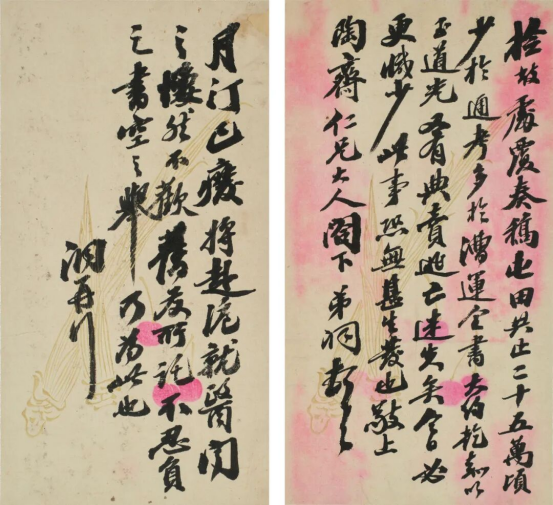 檢處覆奏稿屯田共止二十五萬頃
少於通考多於漕運全書大約乾嘉以
至道光又有典賣逃亡迷失矣今日必
更減少此事恐無甚生發也敬上
陶齋仁兄大人閣下弟洞頓首
月汀已癈將赴滬就醫聞
之然不歡舊友所託不忍負
之書空之舉乃為此也
洞再行